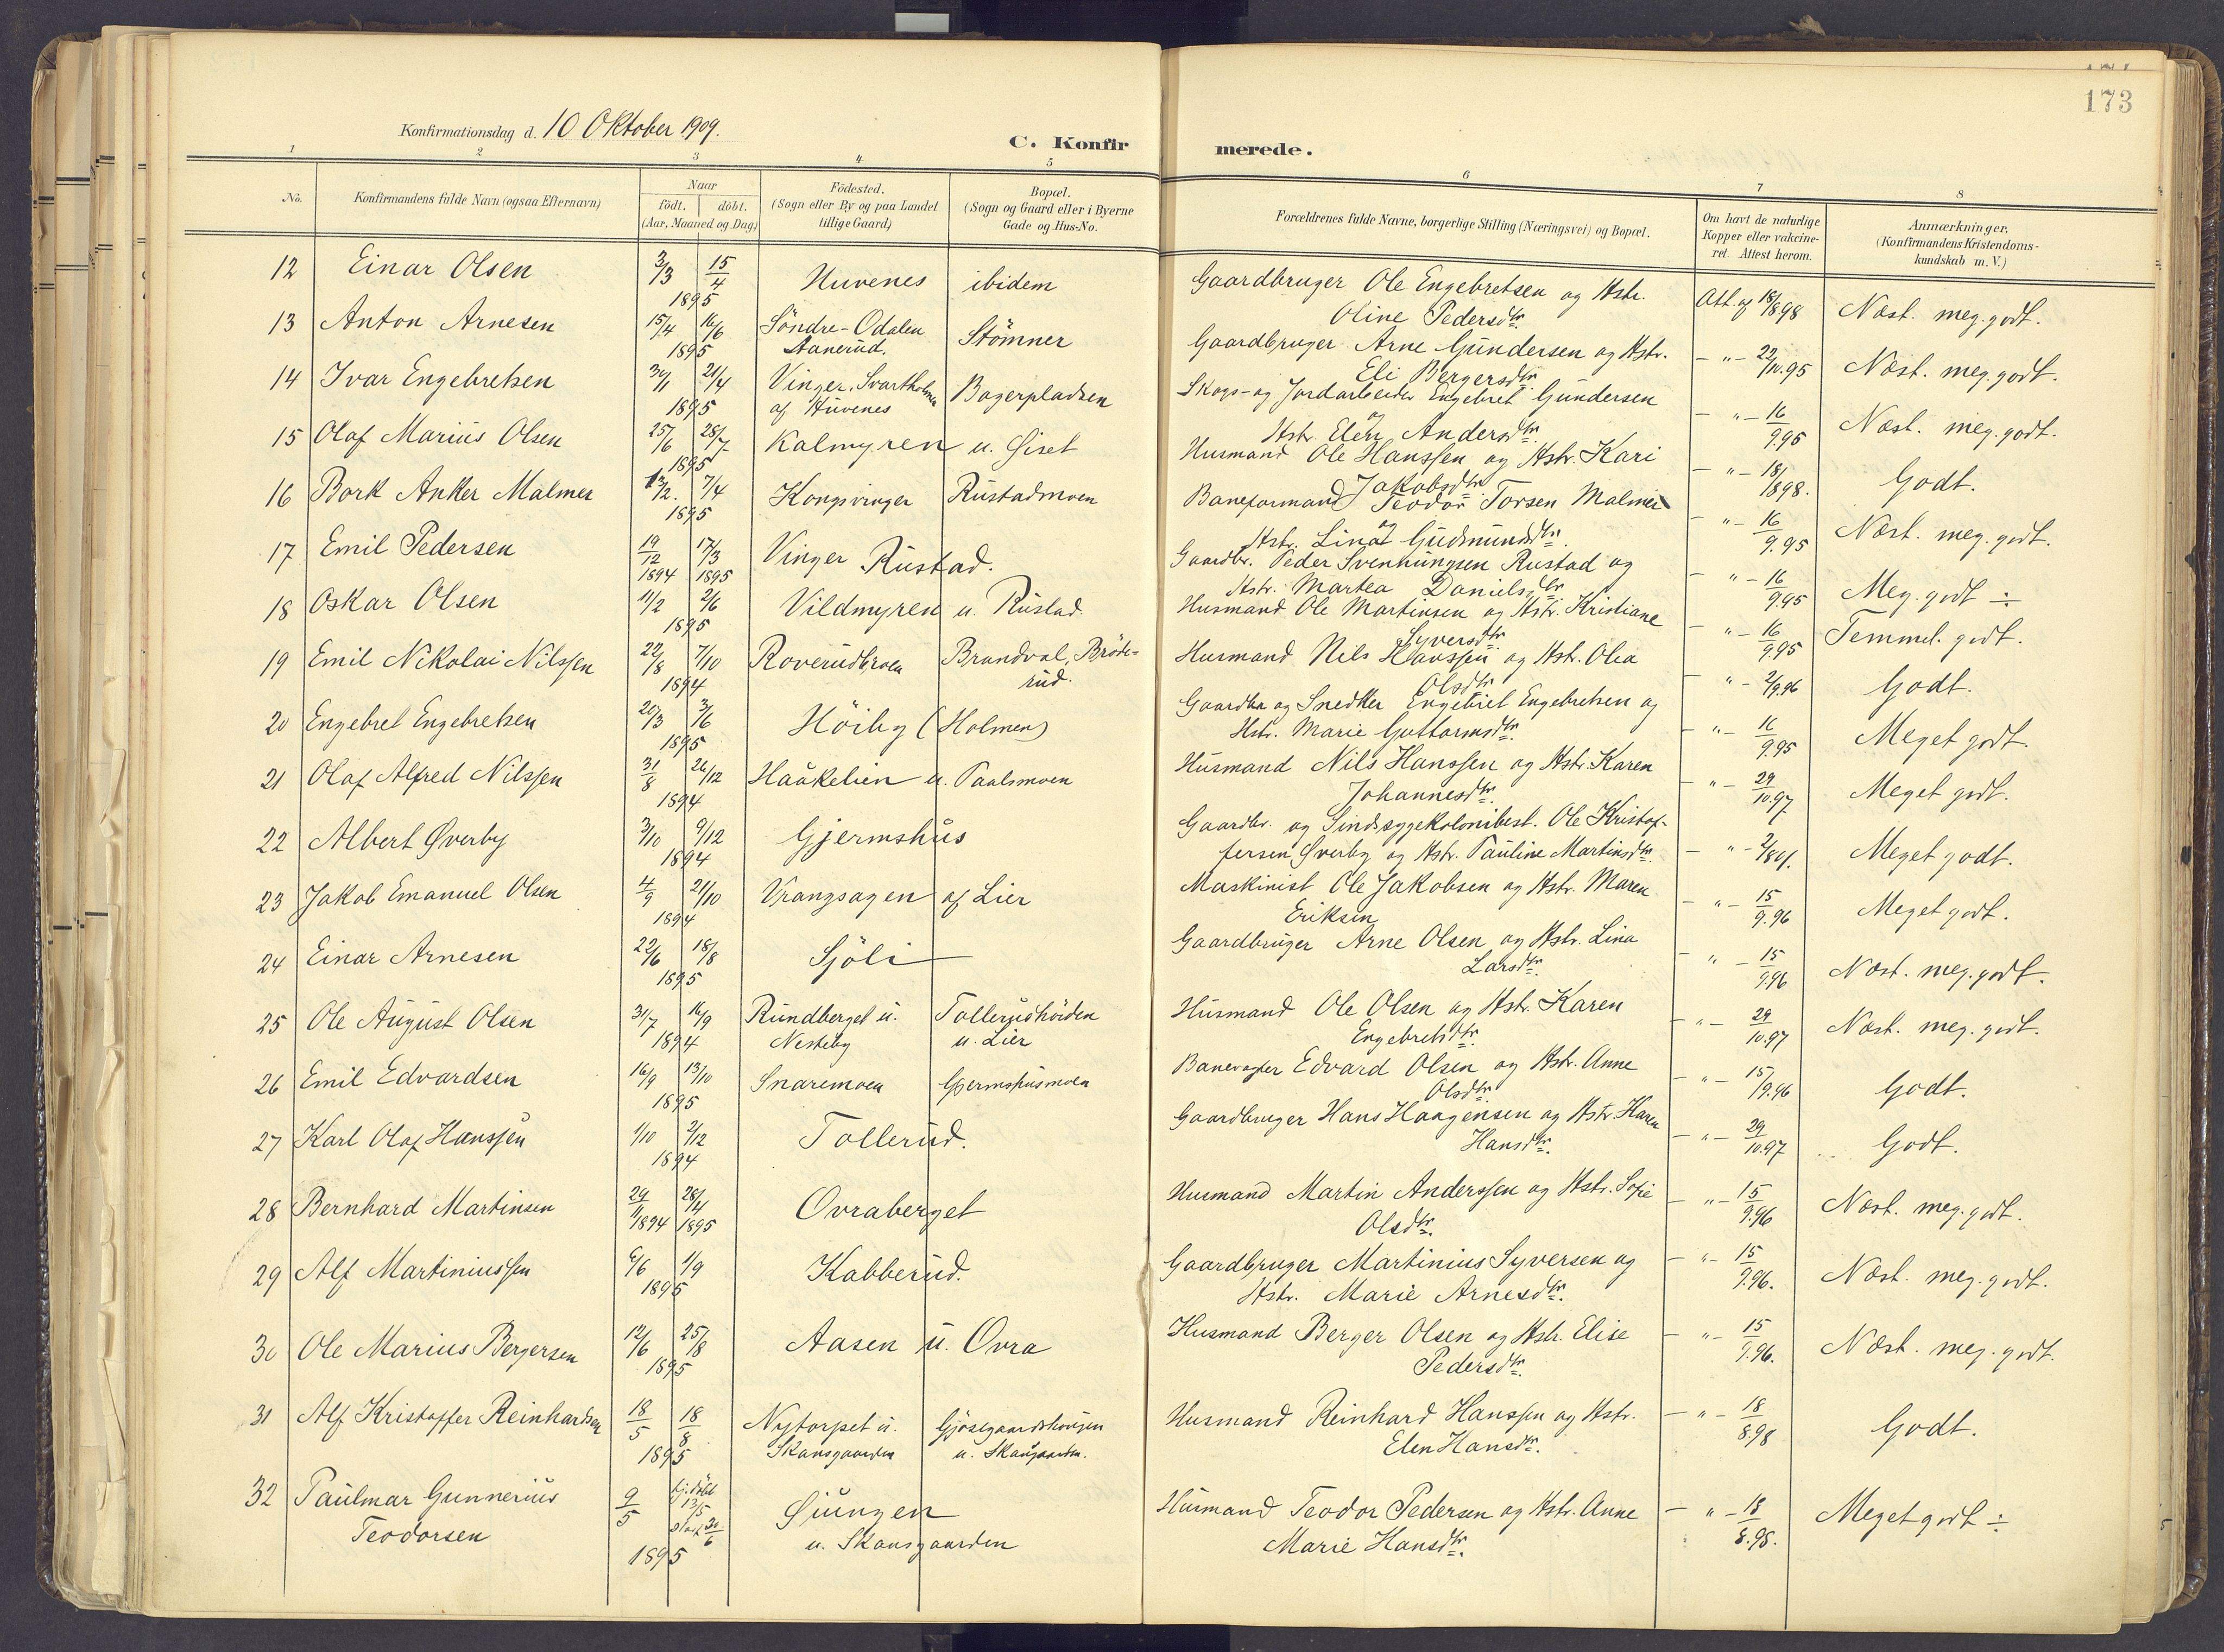 173
Konfirmationsdag d. 10 Oktober 1909.
C. Konfirmerede.
1 2 3 4 5 6 7 8
No. Konfirmandens fulde Navn (ogsaa Efternavn) Naar födt. döbt. (Aar, Maaned og Dag) Födested. (Sogn eller By og paa Landet tillige Gaard) Bopæl. (Sogn og Gaard eller i Byerne Gade og Hus-No. Forældrenes fulde Navne, borgerlige Stilling (Næringsvei) og Bopæl. Om havt de naturlige Kopper eller vakcineret. Attest herom. Anmærkninger. (Konfirmandens Kristendomskundskab m. V.)
12 Einar Olsen 3/3 15/4 1895 Huvenes ibidem Gaardbruger Ole Engebretsen og Hstr. Oline Pedersdtr. Att. af 18/898 Næst. meg. godt.
13 Anton Arnesen 15/4 16/6 1895 Söndre-Odalen Aanerud. Stömner Gaardbruger Arne Gundersen og Hstr. Eli Bergersdtr. - " - 22/10.95 Næst. meg. godt.
14 Ivar Engebretsen 30/1 21/4 1895 Vinger, Svartholmen af Huvenes Bagerpladsen Skogs- og Jordarbeider Engebret Gundersen og Hstr. Elen Andersdtr. - " - 16/9.95 Næst. meg. godt.
15 Olaf Marius Olsen 25/6 28/7 1895 Kalmyren u. Siset Husmand Ole Hanssen og Hstr. Kari Jakobsdtr. - " - 18/898. Godt.
16 Bork Anker Malmer 13/2. 7/4 1895 Kongsvinger Rustadmoen Baneformand Teodor Torsen Malmer og Hstr. Lina Gudmundsdtr. - " - 16/9.95 Næst. meg. godt.
17 Emil Pedersen 19/12 1894 17/3 1895 Vinger Rustad. Gaardbr. Peder Svenhungsen Rustad og Hstr. Martea Danielsdtr. - " - 16/9.95 Meg. godt ÷
18 Oskar Olsen 11/2 2/6 1895 Vildmyren u. Rustad Husmand Ole Martinsen og Hstr. Kristiane Syversdtr. - " - 16/9.95 Temmel. godt.
19 Emil Nikolai Nilssen 22/8 7/10 1894 Roverudbroen Brandval, Bröderud. Husmand Nils Hanssen og Hstr. Olea Olsdtr. - " - 2/9.96 Godt.
20 Engebret Engebretsen 20/3 3/6 1895 Höiby (Holmen) Gaardbr. og Snedker Engebret Engebretsen og Hstr. Marie Guttormsdtr. - " - 16/9.95 Meget godt.
21 Olaf Alfred Nilssen 31/8 26/12 1894 Haakelien u. Paalsmoen Husmand Nils Hanssen og Hstr. Karen Johannesdtr. - " - 29/10.97 Meget godt.
22 Albert Øverby 3/10 9/12 1894 Gjermshus Gaardbr. og Sindssygekolonibest. Ole Kristoffersen Øverby og Hstr. Pauline Martinsdtr. - " - Meget godt.
23 Jakob Emanuel Olsen 4/9 21/10 1894 Vrangsagen af Lier Maskinist Ole Jakobsen og Hstr. Maren Eriksen - " - 15/9.96 Meget godt.
24 Einar Arnesen 22/6 18/8 1895 Sjöli Gaardbruger Arne Olsen og Hstr. Lina Larsdtr. - " - 15/9.96 Næst. meg. godt.
25 Ole August Olsen 31/7 16/9 1894 Rundberget u. Nesteby Tollerudhöiden u. Lier Husmand Ole Olsen og Hstr. Karen Engebretsdtr. - " - 29/10.97 Næst. meg. godt.
26 Emil Edvardsen 16/9 13/10 1895 Snaremoen Gjermshusmoen Banevogter Edvard Olsen og Hstr. Anne Olsdtr. - " - 15/9.96 Godt.
27 Karl Olaf Hanssen 1/10 2/12 1894 Tollerud. Gaardbruger Hans Haagensen og Hstr. Karen Hansdtr. - " - 29/10.97 Godt.
28 Bernhard Martinsen 29/11 1894 28/4 1895 Ovraberget Husmand Martin Anderssen og Hstr. Sofie Olsdtr. - " - 15/9.96 Næst. meg. godt.
29 Alf Martiniussen 6/6 1/9 1895 Kabberud. Gaardbruger Martinius Syversen og Hstr. Marie Arnesdtr. - " - 15/9.96. Næst. meg. godt.
30 Ole Marius Bergersen 12/6 25/8 1895 Aasen u. Ovra Husmand Berger Olsen og Hstr. Elise Pedersdtr. - " - 15/9.96. Næst. meg. godt.
31 Alf Kristoffer Reinhardsen 18/5 18/8 1895 Nytorpet u. Skansgaarden u. Skansgaarden. Husmand Reinhard Hanssen og Hstr. Elen Hansdtr. - " - 18/8.98 Godt.
32 Paulmar Gunnerius Teodorsen 9/5 hj. döbt 13/5 stadf. 30/6 1895 u. Skansgaarden Husmand Teodor Pedersen og Hstr. Anne Marie Hansdtr. - " - 18/8.98. Meget godt ÷